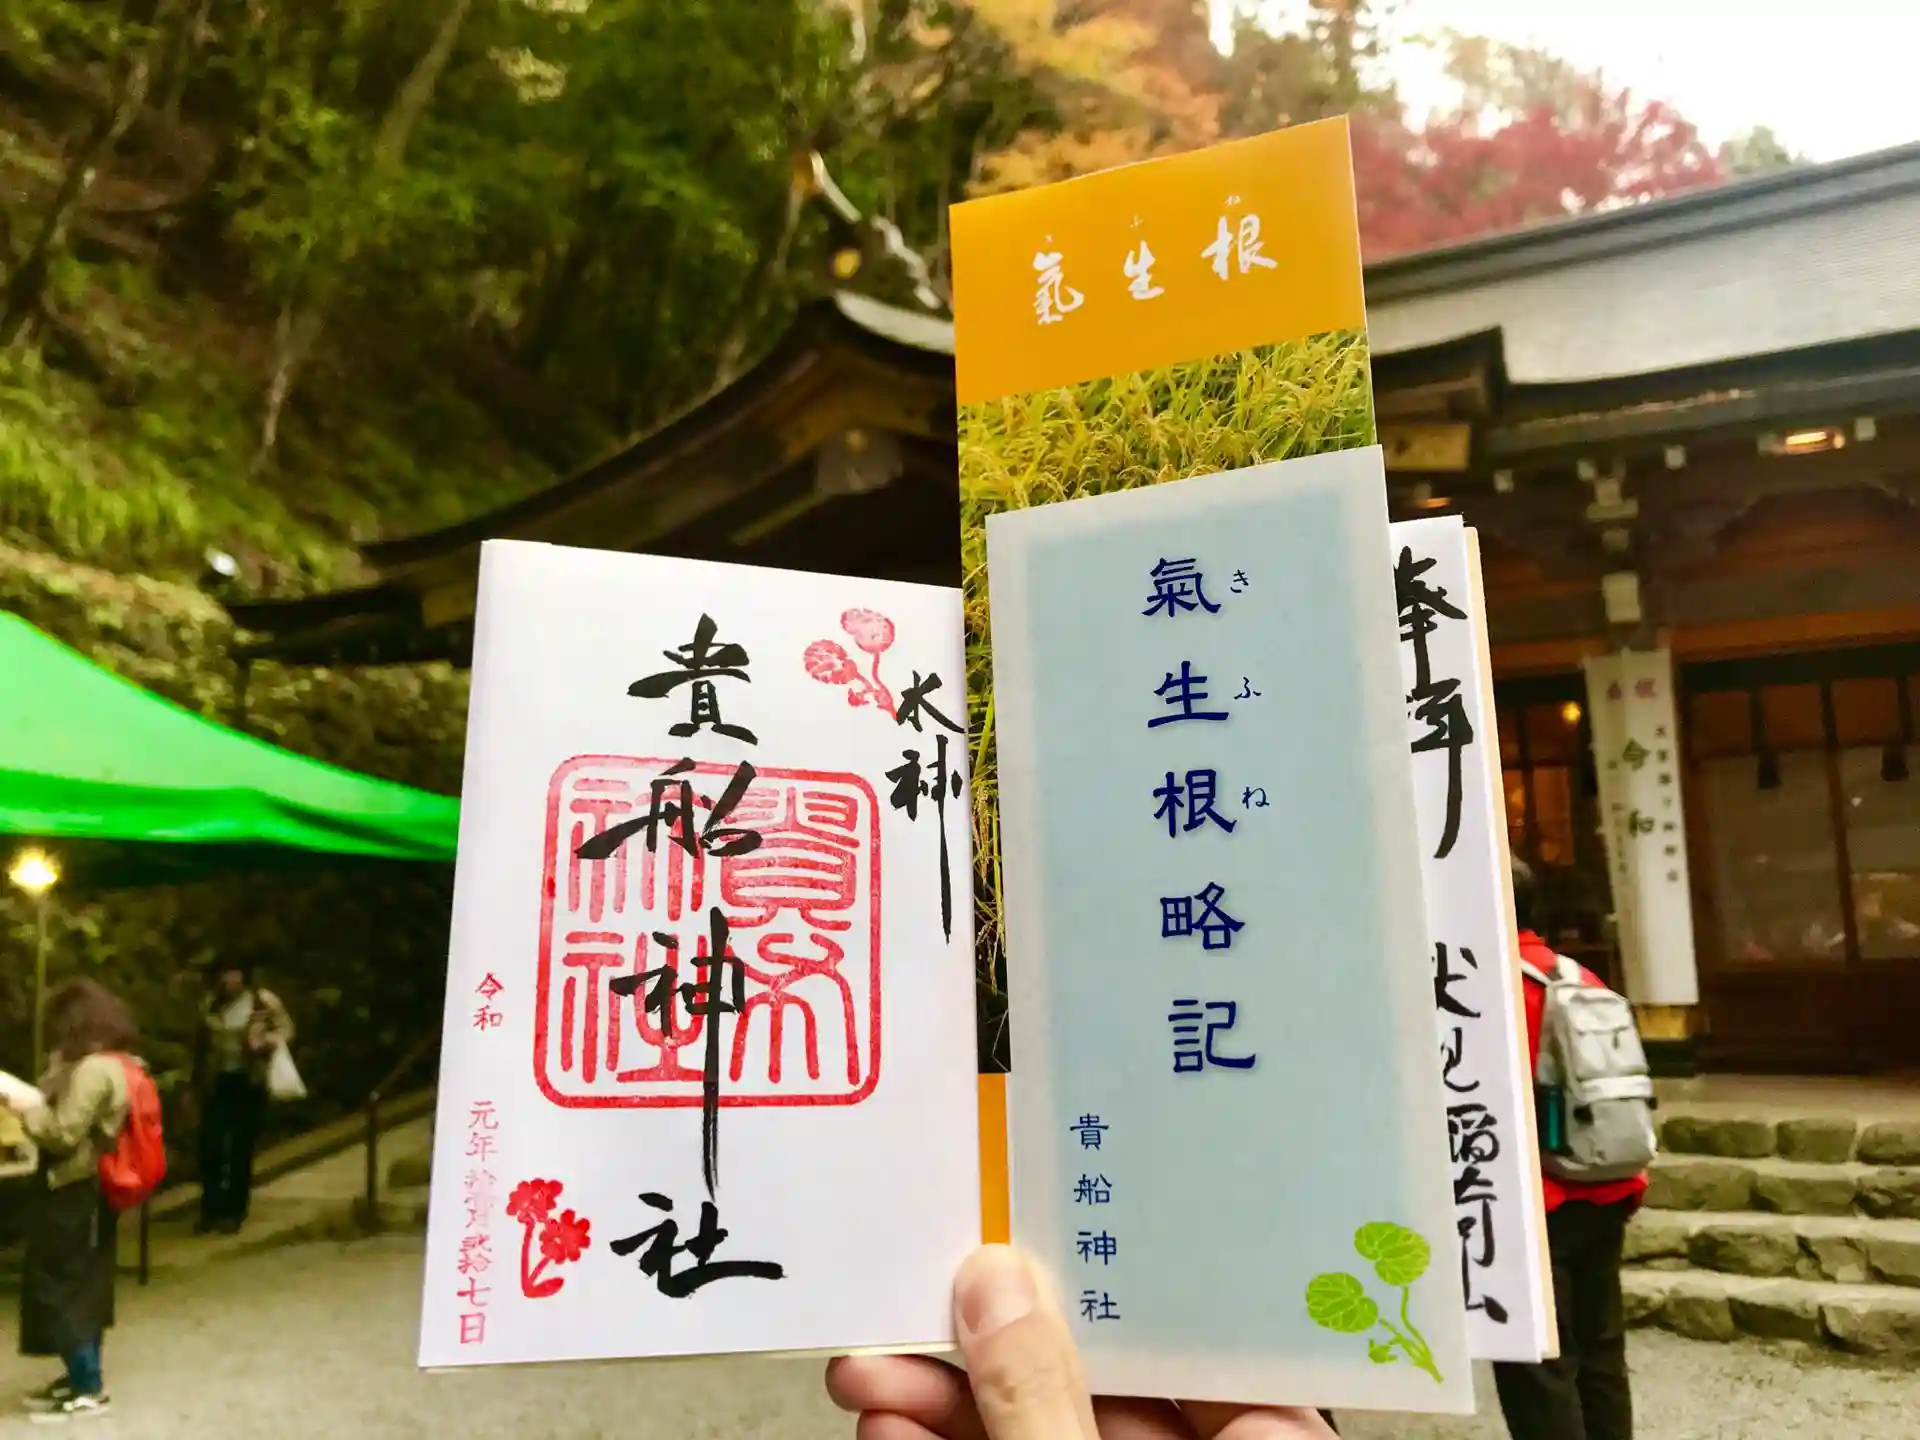 氣生根
き ふ ね
水神
貴船神社
貴布祢社
令和
元年拾壹月弐拾七日
氣生根略記
き ふ ね
貴船神社
奉拝
伏見稲荷山
令和